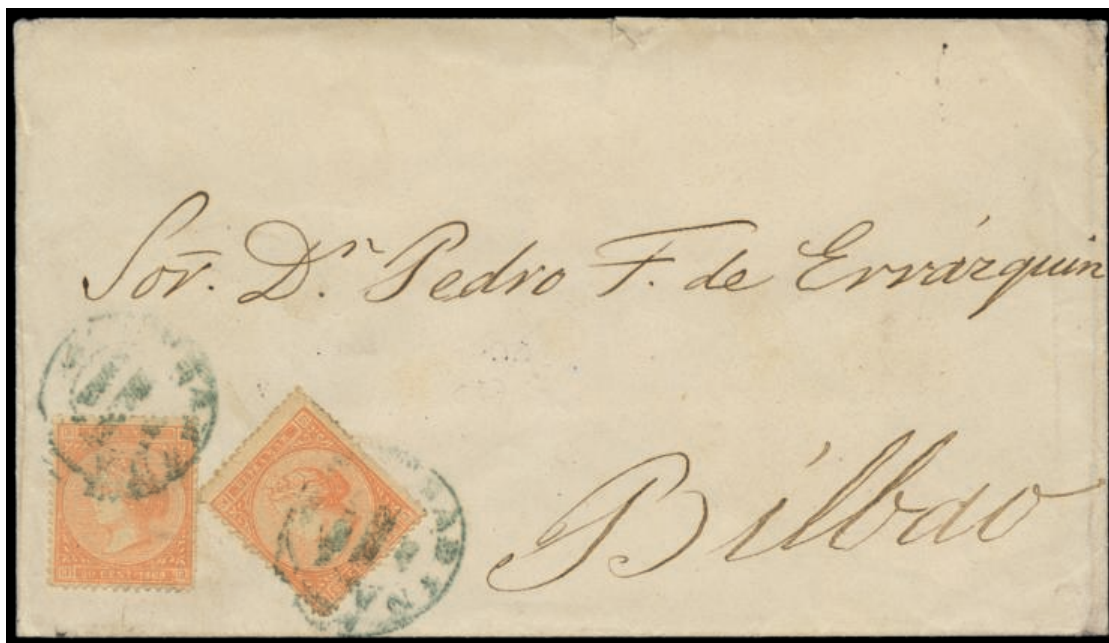 Sor. Dn. Pedro F. de Errázquin
Bilbao